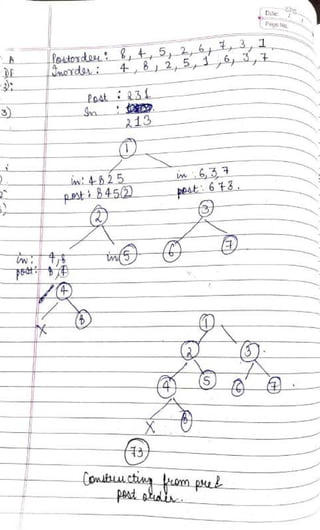 Date:
Page No.
A Postorder: 8, 4, 5, 2, 6, 7, 3, 1
DF Inorder: 4, 8, 2, 5, 1, 6, 3, 7
3):
Post : 231
3) In :
213
1
in: 4 8 2 5 in : 6, 3, 7
post: 8 4 5 2 post: 6 7 3.
2 3
in: 4, 8 in 5 6 7
post: 8, 4
4
X 8
1
2 3
4 5 6 7
X 8
73
Constructing from pre &
post order.